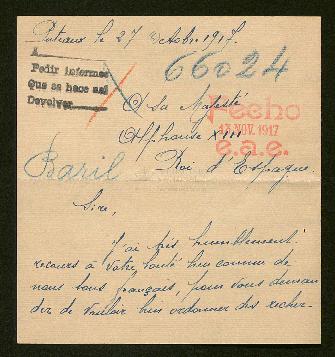 Puteaux le 27 Octobre 1917.
A
Pedir informes
Que se hace así
Devolver
66024
A Sa Majesté
Hecho
13 NOV. 1917
e.a.e.
Alphonse XIII
Baril
Roi d'Espagne.
Sire,
J'ai très humblement
recours à votre bonté bien connue de
nous tous français, pour vous deman
der de vouloir bien ordonner des recher-